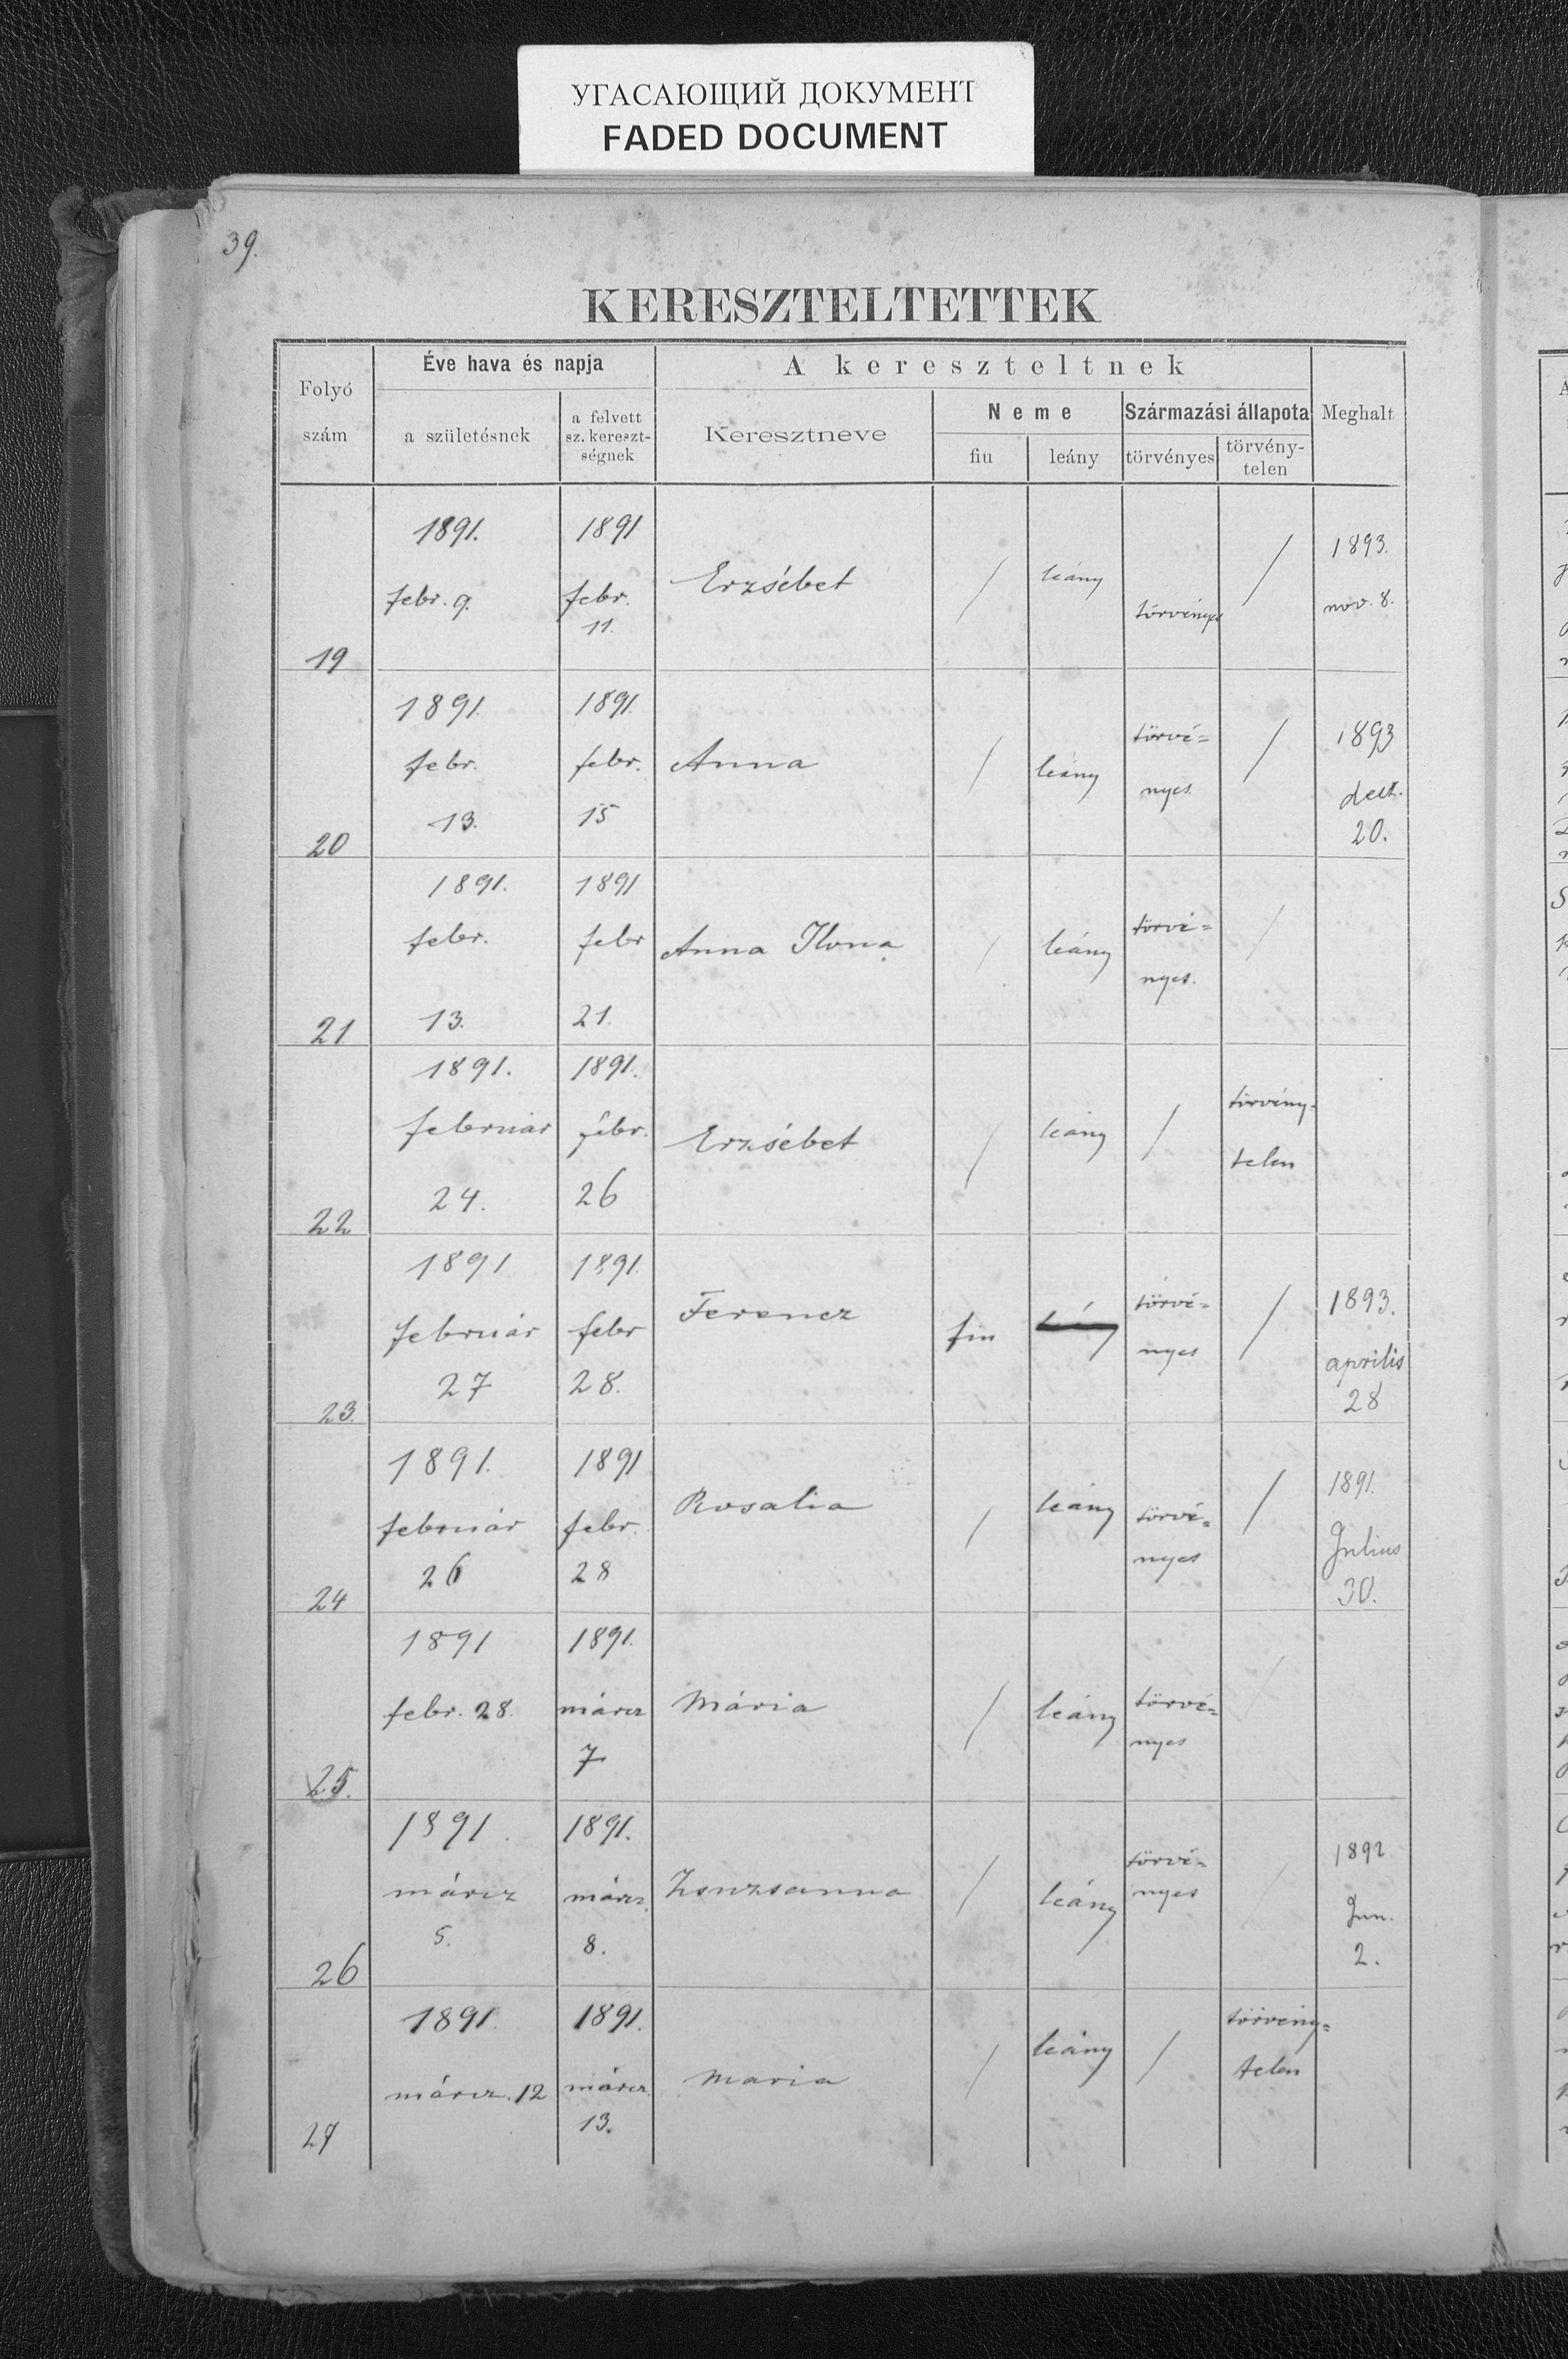 УГАСАЮЩИЙ ДОКУМЕНТ
FADED DOCUMENT
39.
KERESZTELTETTEK
Folyó szám
Éve hava és napja
a születésnek
a felvett sz. kereszt-ségnek
A kereszteltnek
Keresztneve
Neme
fiu
leány
Származási állapota
törvényes
törvény-telen
Meghalt
19 1891. febr. 9. 1891 febr. 11. Erzsébet / leány törvényes / 1893. nov. 8.
20 1891. febr. 13. 1891. febr. 15 Anna / leány törvé= nyes. / 1893 decz. 20.
21 1891. febr. 13. 1891 febr 21. Anna Ilona / leány törvé= nyes. /
22 1891. február 24. 1891. febr. 26 Erzsébet / leány / törvény- telen
23. 1891 február 27 1891 febr 28. Ferencz fiu leány törvé= nyes / 1893. április 28
24 1891. február 26 1891 febr. 28 Rosalia / leány törvé= nyes / 1891. Julius 30.
25. 1891 febr. 28. 1891. márcz 7 Mária / leány törvé= nyes /
26 1891. márcz 5. 1891. márcz. 8. Zsuzsanna / leány törvé= nyes / 1892 Jun. 2.
27 1891. márcz. 12 1891. márcz. 13. Maria / leány / törvény= telen